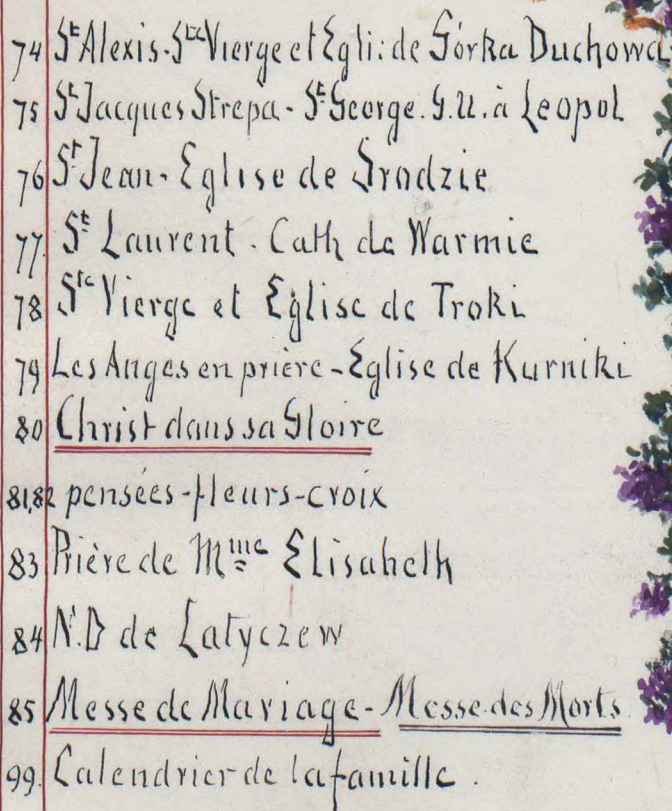 74 St Alexis - Ste Vierge et Egli: de Górka Duchowa
75 St Jacques Strepa - St George. G.U. à Leopol
76 St Jean - Eglise de Srodzie
77. St Laurent. Cath de Warmie
78 Ste Vierge et Eglise de Troki
79 Les Anges en prière - Eglise de Kurniki
80 Christ dans sa Gloire
81,82 pensées - fleurs - croix
83 Prière de Mme Elisabeth
84 N.D de Latyczew
85 Messe de Mariage - Messe des Morts
99. Calendrier de la famille.